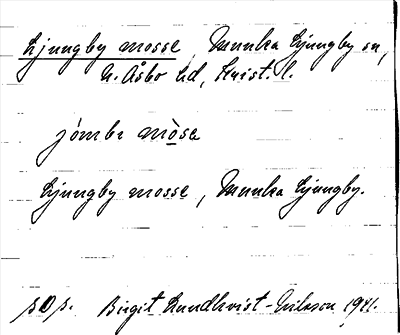 Ljungby mosse, Munka Ljungby sn,
N. Åsbo hd, Krist. l.
jómbɩ mòsa
Ljungby mosse, Munka Ljungby.
p o p. Birgit Lundkvist-Nilsson 1941.